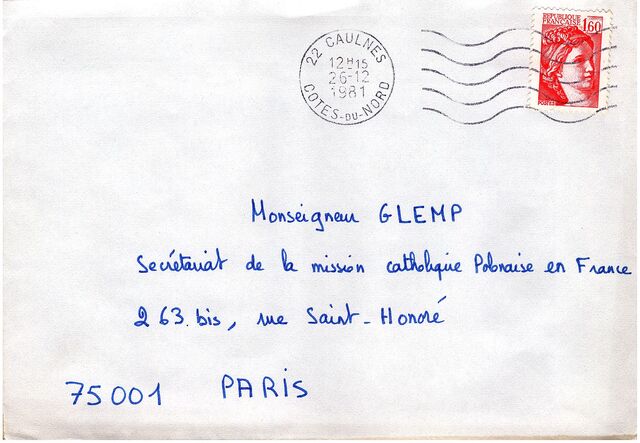 22 CAULNES
12H15
26-12
1981
COTES-DU-NORD
REPUBLIQUE
FRANÇAISE
1,60
Monseigneur GLEMP
Secrétariat de la mission catholique Polonaise en France
263.bis, rue Saint-Honoré
75001 PARIS